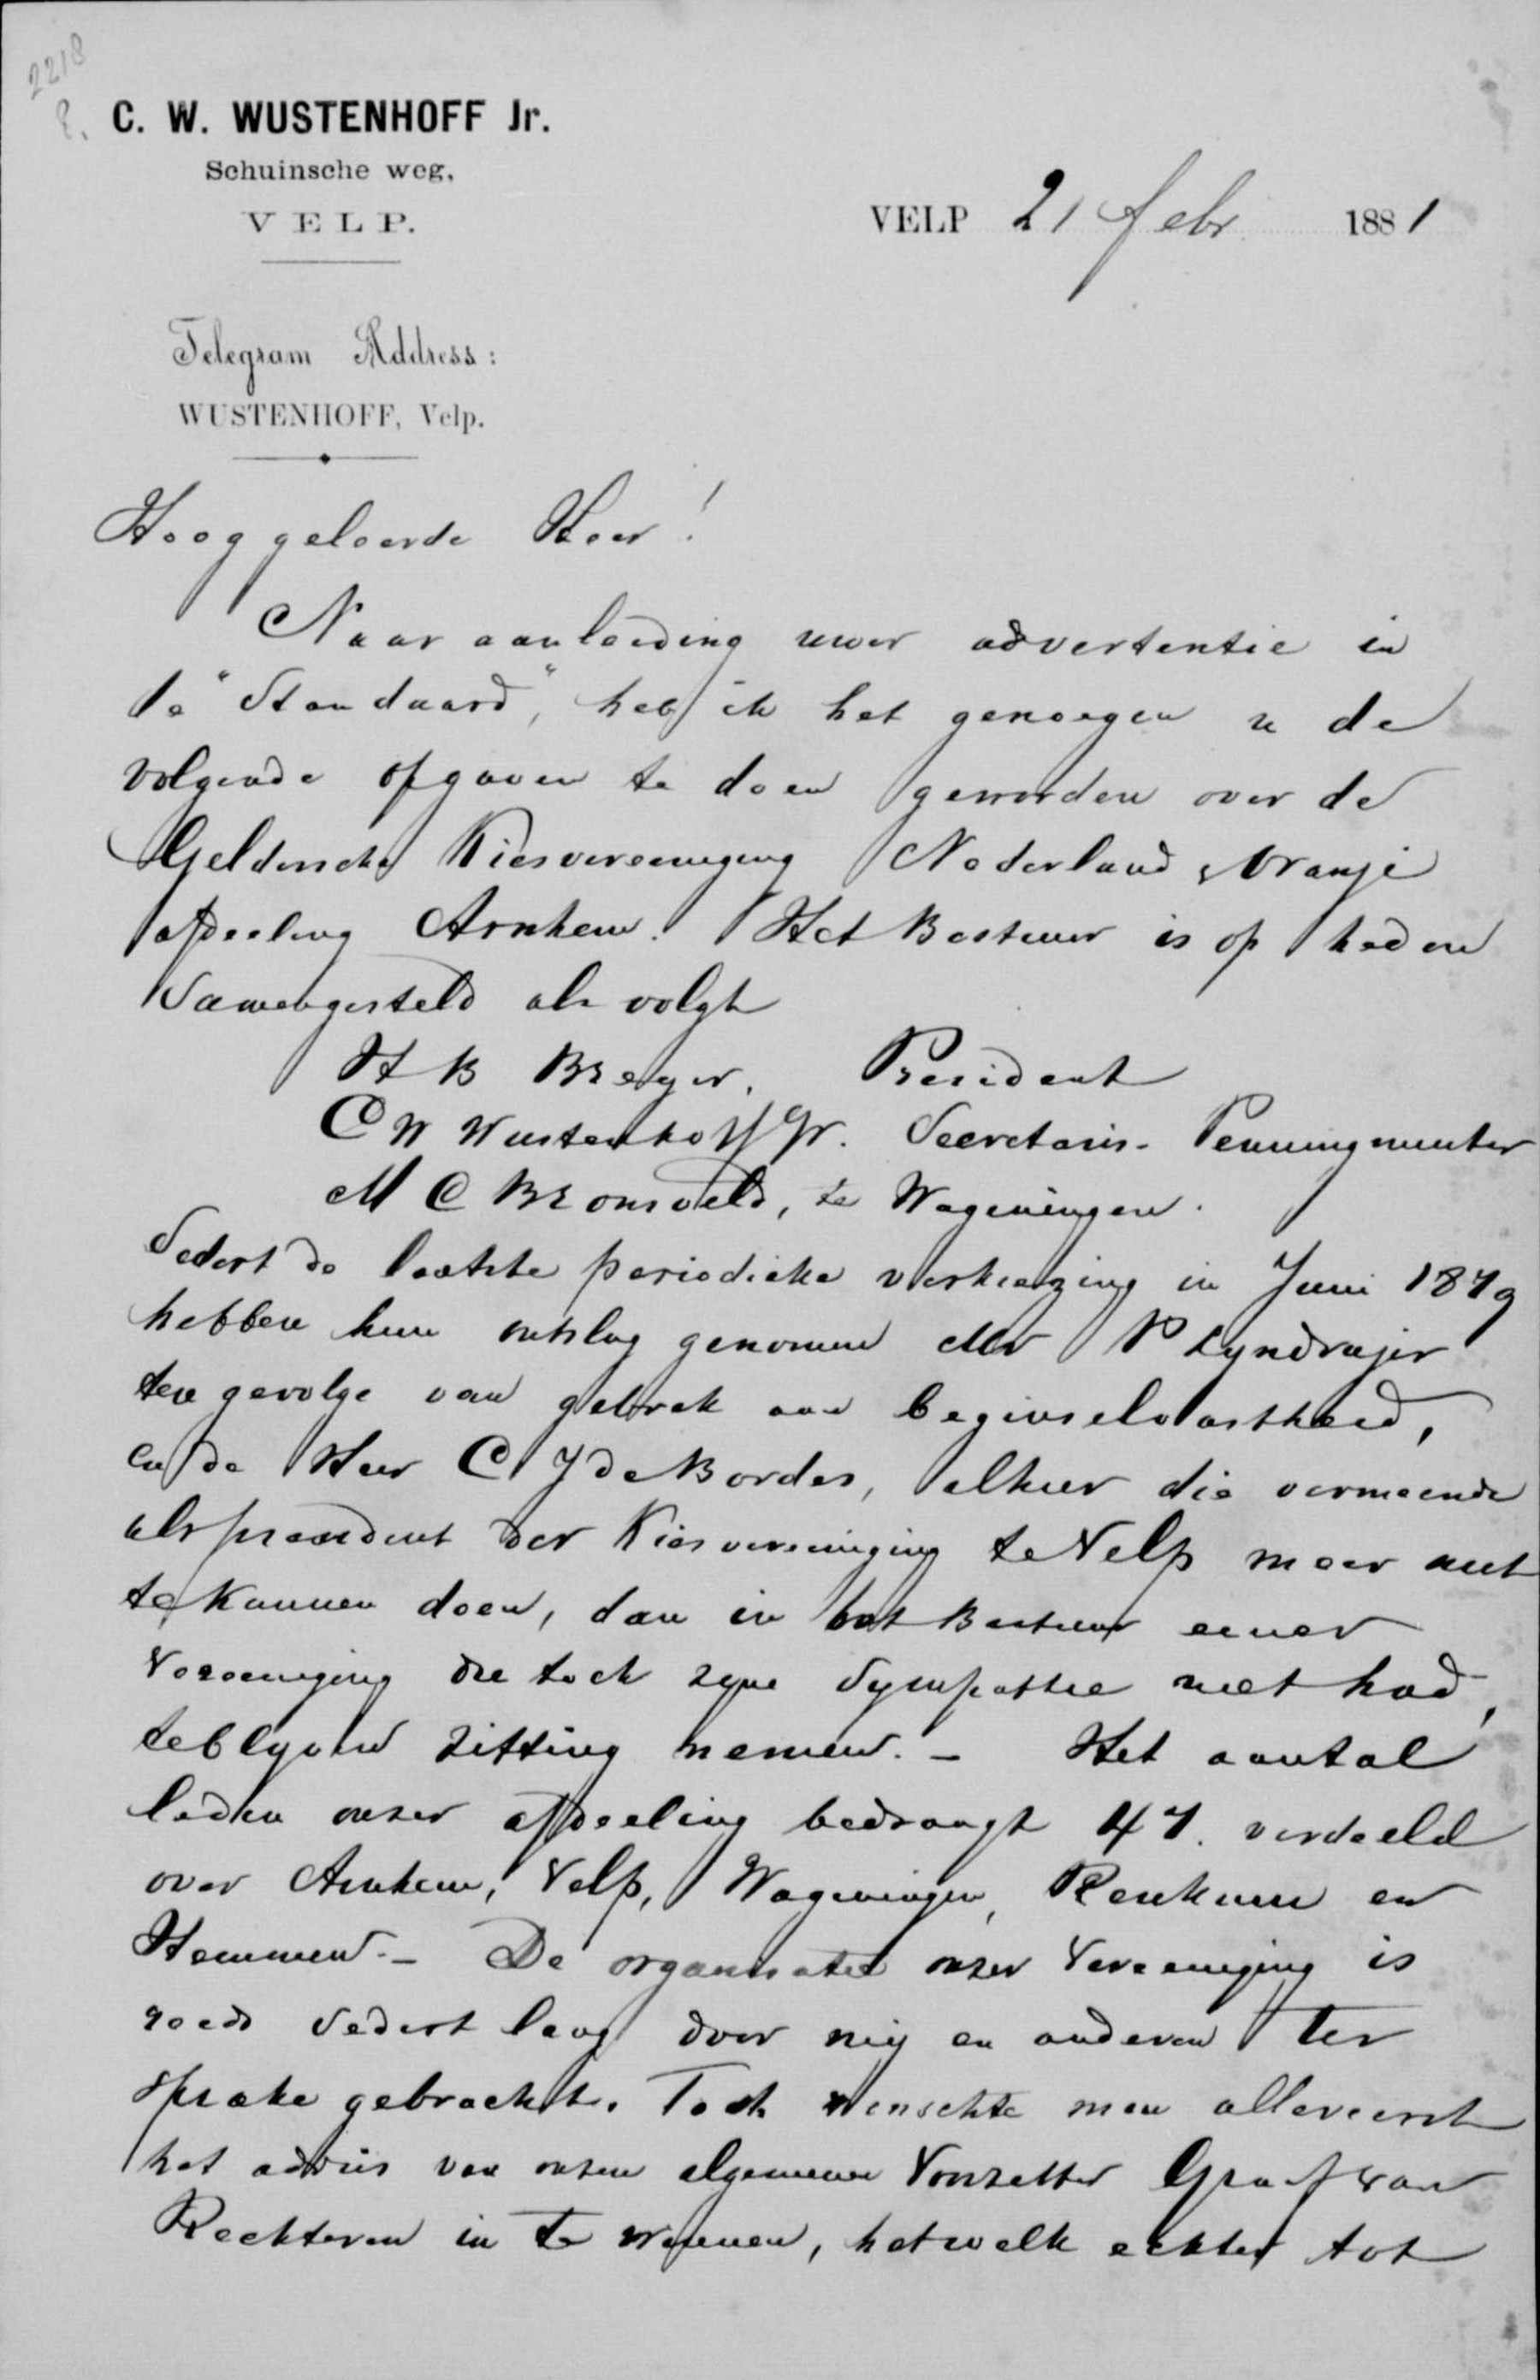 2218
C. W. WUSTENHOFF Jr.
Schuinsche weg,
VELP.
VELP 21 febr 1881
Telegram Address:
WUSTENHOFF, Velp.
Hooggeleerde Heer!
Naar aanleiding uwer advertentie in
de "Standaard", heb ik het genoegen u de
volgende opgaven te doen geworden over de
Geldersche Kiesvereeniging Nederland & Oranje
afdeeling Arnhem. Het Bestuur is op heden
Samengesteld als volgt
H B Breyer. President
C W Wustenhoff Jr. Secretaris-Penningmeester
M C Bronsveld, te Wageningen.
Sedert de laatste periodieke verkiezing in Juni 1879
hebben hun ontslag genomen Mr P Lyndrajer
ten gevolge van gebrek aan beginselvastheid,
en de Heer C J de Bordes, alhier die vermeende
als president der Kiesvereeniging te Velp meer nut
te kunnen doen, dan in het Bestuur eener
Vereeniging die toch zyne Sympathie niet had,
te blyven zitting nemen. - Het aantal
leden onzer afdeeling bedraagt 47. verdeeld
over Arnhem, Velp, Wageningen, Renkum en
Hemmen. - De organisatie onzer Vereeniging is
reeds Sedert lang door mij en anderen ter
sprake gebracht. Toch wenschte men allereerst
het advies van onzen algemeenen Voorzitter Graaf van
Rechteren in te winnen, hetwelk echter tot